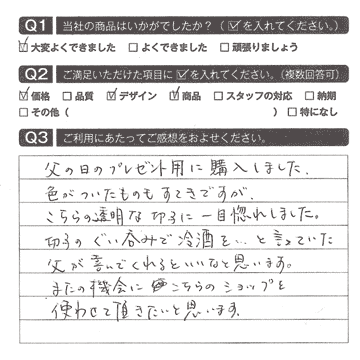 Q1 当社の商品はいかがでしたか？（☑を入れてください。）
☑大変よくできました □よくできました □頑張りましょう
Q2 ご満足いただけた項目に☑を入れてください。（複数回答可）
☑価格 □品質 ☑デザイン ☑商品 □スタッフの対応 □納期
□その他（ ） □特になし
Q3 ご利用にあたってご感想をおよせください。
父の日のプレゼント用に購入しました。
色がついたものもすてきですが、
こちらの透明な切子に一目惚れしました。
切子のぐい呑みで冷酒を…と言っていた
父が喜んでくれるといいなと思います。
またの機会にこちらのショップを
使わせて頂きたいと思います。